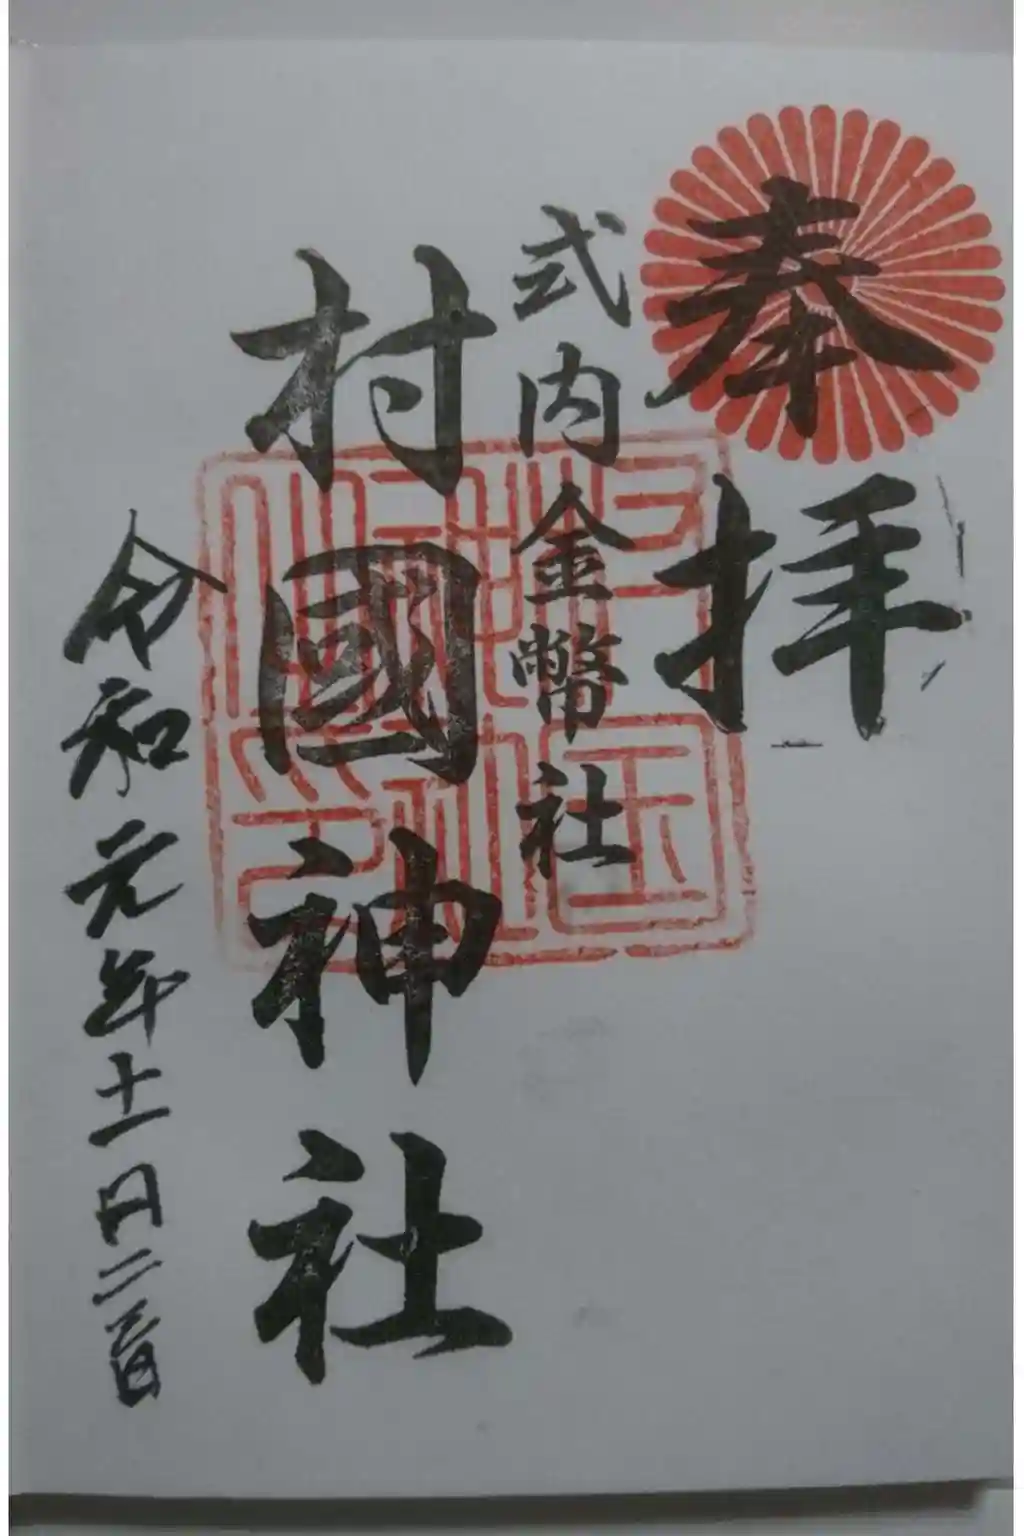 奉拝
式内金幣社
村國神社
令和元年十一月二三日